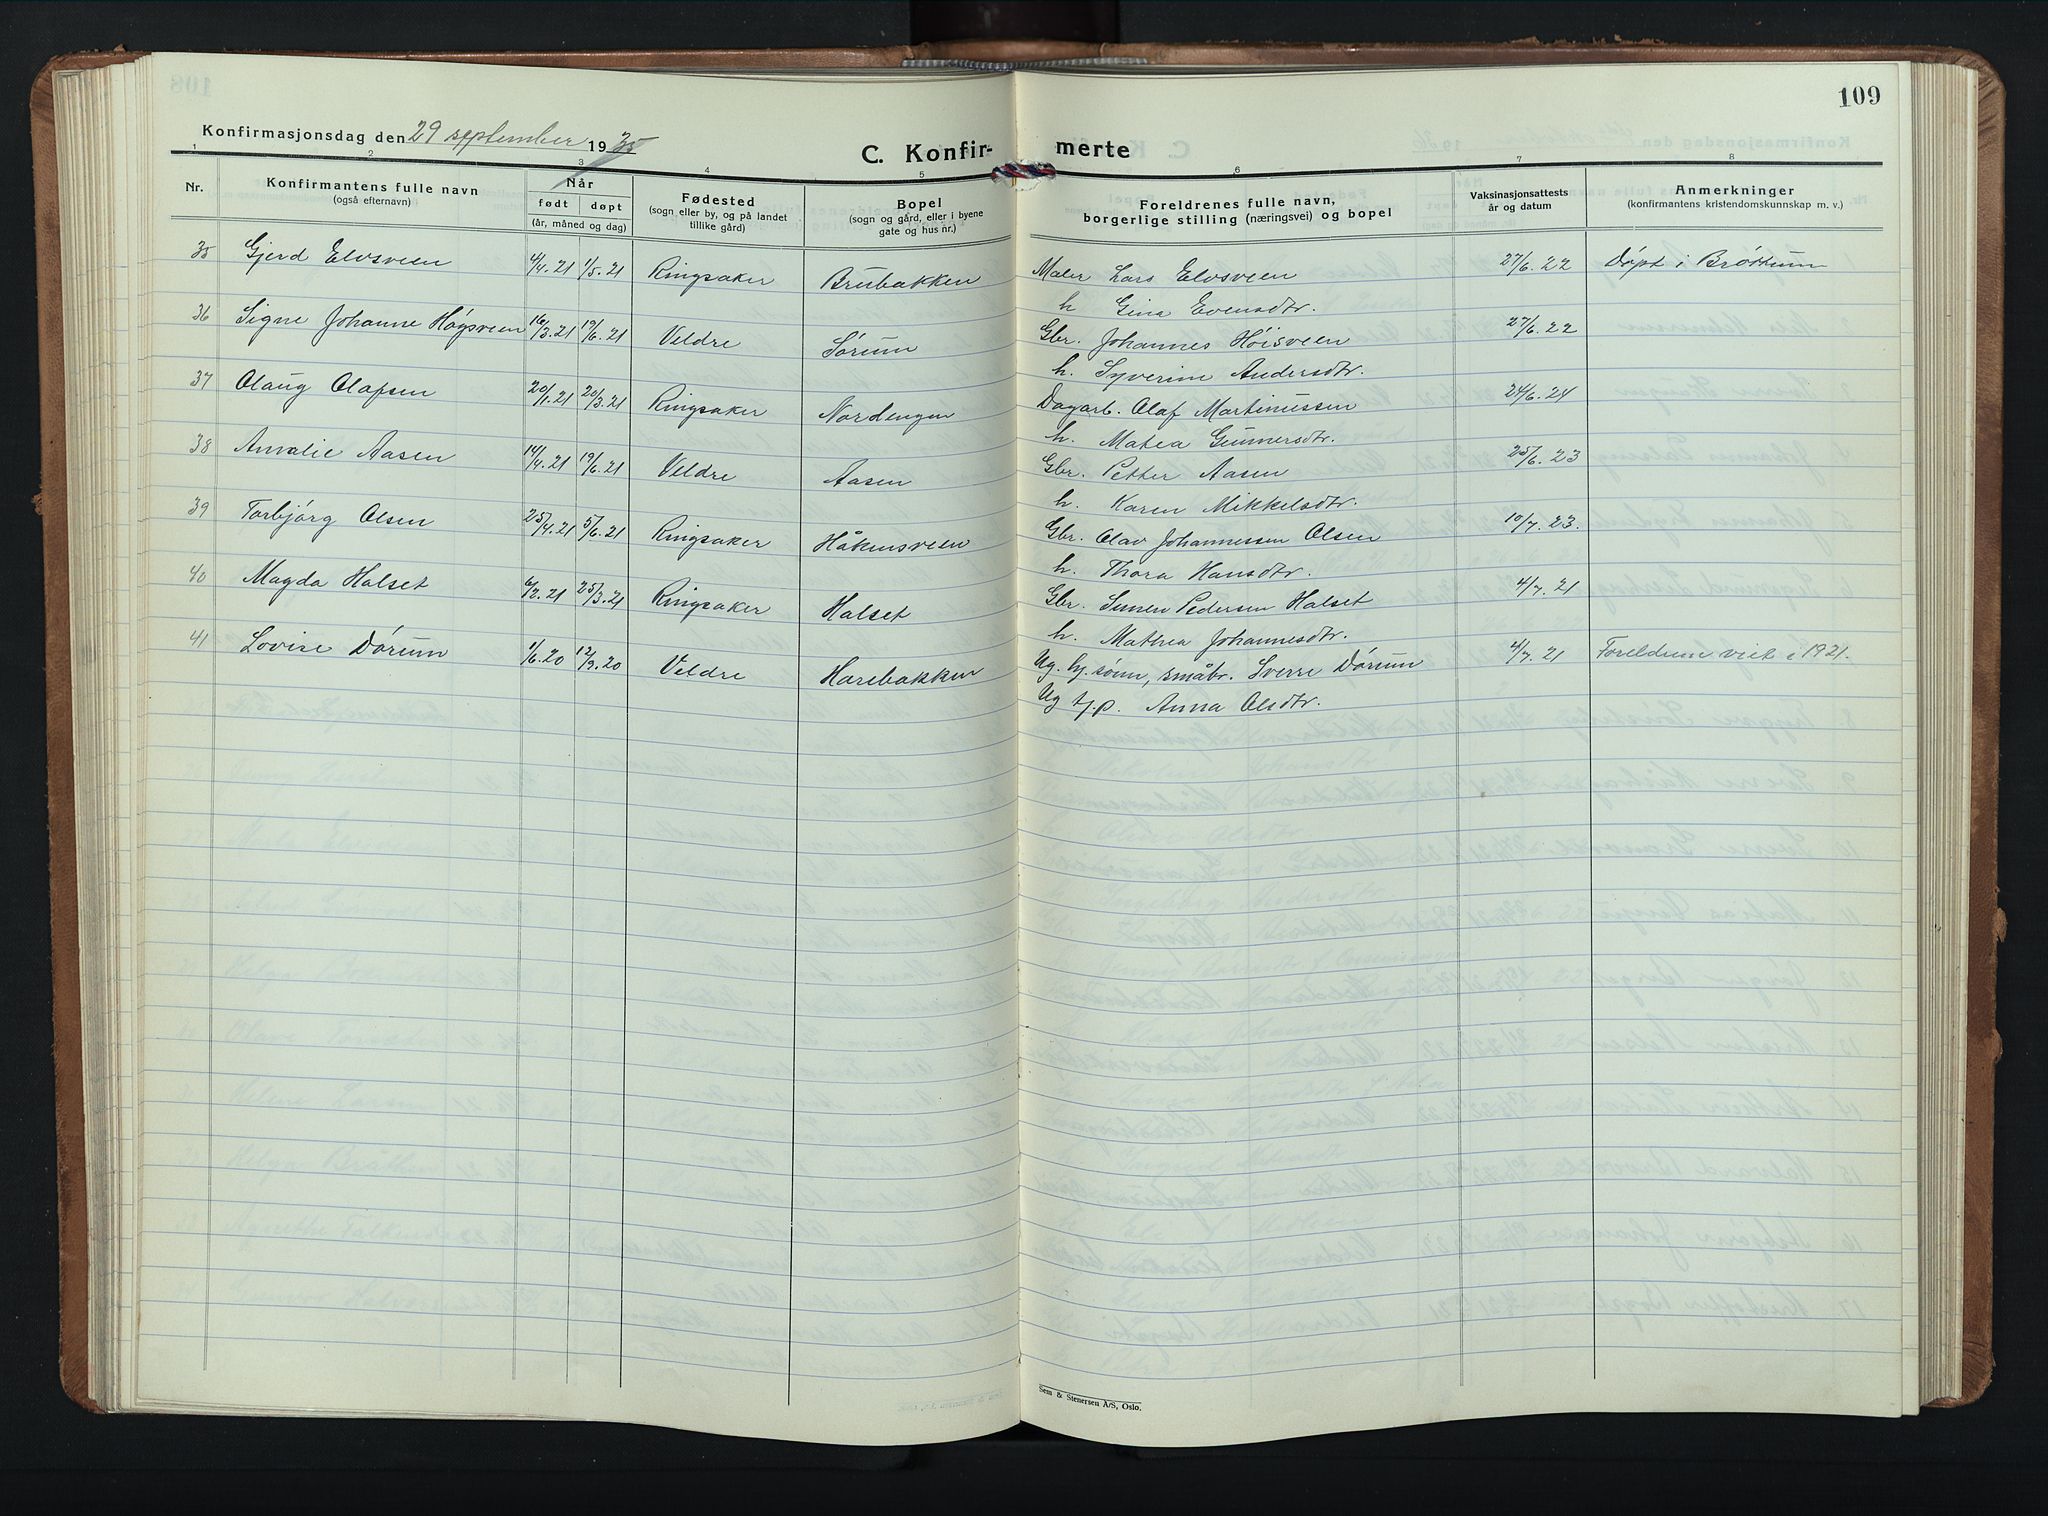 109
Konfirmasjonsdag den 29 september 1935
C. Konfir- merte
1 2 3 4 5 6 7 8
Nr. Konfirmantens fulle navn (også efternavn) Når født døpt (år, måned og dag) Fødested (sogn eller by, og på landet tillike gård) Bopel (sogn og gård, eller i byene gate og hus nr.) Foreldrenes fulle navn, borgerlige stilling (næringsvei) og bopel Vaksinasjonsattests år og datum Anmerkninger (konfirmantens kristendomskunnskap m. v.)
35 Gjerd Elvsveen 4/4.21 1/5.21 Ringsaker Brubakken Maler Lars Elvsveen 27/6.22 Døpt i Brøttum
h Gina Evensdtr.
36 Signe Johanne Høgsveen 16/3.21 19/6.21 Veldre Sørum Gbr. Johannes Høisveen 27/6.22
h. Syverine Andersdtr.
37 Olaug Olafsen 20/1.21 20/3.21 Ringsaker Nordengen Dagarb. Olaf Martinussen 24/6.24
h. Matea Gunnersdtr.
38 Amalie Aasen 14/4.21 19/6.21 Veldre Aasen Gbr. Petter Aasen 25/6.23
h. Karen Mikkelsdtr.
39 Torbjørg Olsen 25/4.21 5/6.21 Ringsaker Håkensveen Gbr. Olav Johannessen Olsen 10/7.23.
h. Thora Hansdtr.
40 Magda Halset 6/2.21 25/3.21 Ringsaker Halset Gbr. Simen Pedersen Halset 4/7.21
h. Mathea Johannesdtr.
41 Lovise Dørum 1/6.20 12/9.20 Veldre Harebakken Ug. hj. sønn, småbr. Sverre Dørum 4/7.21 Foreldrene viet i 1921.
Ug tj.p. Anna Olsdtr.
Sem & Stenersen A/S, Oslo.